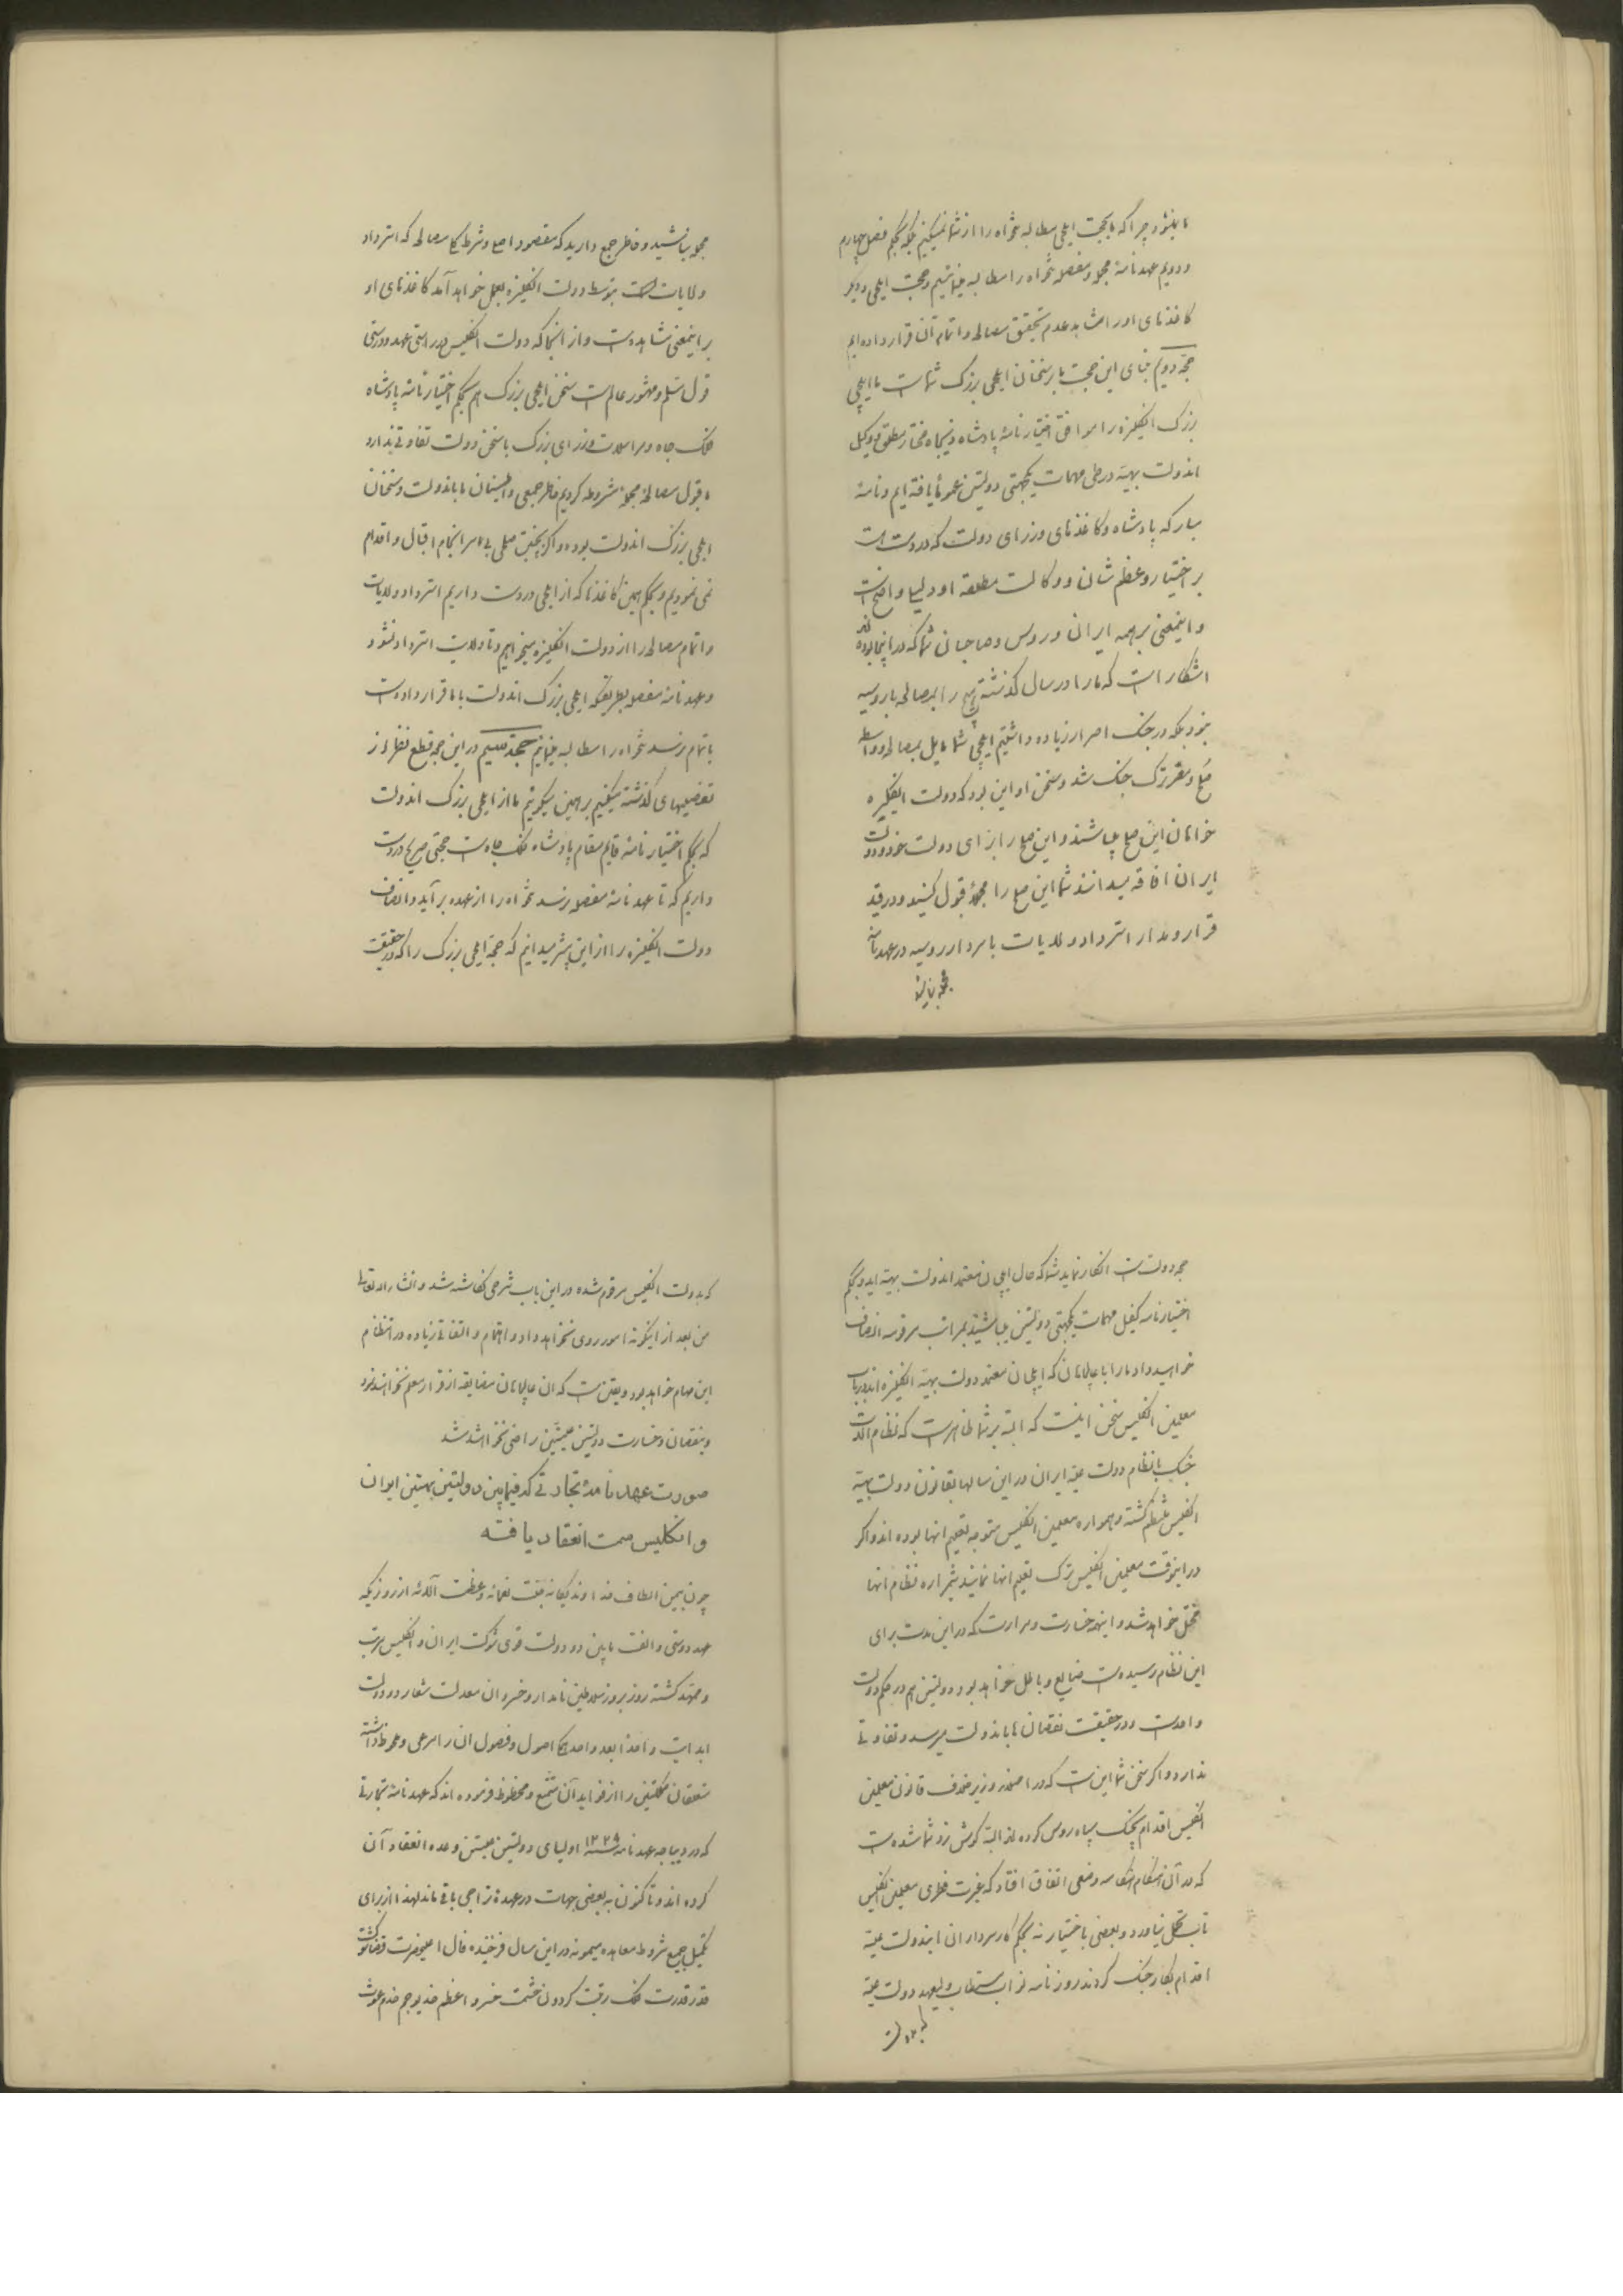 ما بلند و چرا که ما بحجت ایلچی مطالبه تنخواه را از شما نمیکنیم بلکه بحکم فصل چهارم
و دویم عهدنامهٔ مجمله و مفصله تنخواه را مطالبه مینمائیم و حجت ایلچی و دیگر
کاغذهای او را شاهد عدم تحقیق مصالحه و اتمام آن قرار داده‌ایم
حجة دویم بنای این حجت ما بر سخنان ایلچی بزرگ شماست ما ایلچی
بزرگ انگلیز را موافق اختیارنامهٔ پادشاه ذیجاه مختار مطلق و وکیل
اندولت بهیه در طی مهمات یکجهتی دولتین عموماً یافته‌ایم و نامهٔ
مبارکه پادشاه و کاغذهای وزرای دولت که در دست است
بر اختیار و عظم شان و وکالت مطلقه او دلیل واضح است
و اینمعنی بر همه ایران و روس و صاحبان شما که در اینجا بوده‌اند
اشکار است که ما را در سال گذشته هیچ رای بمصالحه با روسیه
نبود بلکه در جنگ اصرار زیاده داشتیم ایلچی شما مایل بمصالحه و واسطه
صلح و مقرر ترک جنگ شد و سخن او این بود که دولت انگلیزه
خواهان این صلح میباشند و این صلح را از برای دولت خود و دولت
ایران افاقه میدانند شما این صلح را مجملاً قبول کنید و در قید
قرار و مدار استرداد ولایات با سردار روسیه در عهدنامه
مجمله نباشید
مجمله نباشید و خاطر جمع دارید که مقصود اصلی و شرط کلی مصالحه که استرداد
ولایات است بتوسط دولت انگلیزه بعمل خواهد آمد کاغذهای او
بر اینمعنی شاهد است و از آنجا که دولت انگلیس در راستی عهد و درستی
قول مسلم و مشهور عالم است سخن ایلچی بزرگ هم بحکم اختیارنامهٔ پادشاه
فلک جاه و مراسلات وزرای بزرگ با سخن دولت تفاوتی ندارد
ما قبول مصالحهٔ مجمله مشروطه کردیم خاطر جمعی و اطمینان ما باندولت و سخنان
ایلچی بزرگ اندولت بوده و اگر نه بچنین صلحی بی سرانجام اقبال و اقدام
نمی نمودیم و بحکم همین کاغذها که از ایلچی در دست داریم استرداد ولایات
و اتمام مصالحه را از دولت انگلیزه میخواهیم و تا ولایت استرداد نشود
و عهدنامهٔ مفصله بطریقیکه ایلچی بزرگ اندولت با ما قرار داده است
باتمام نرسد تنخواه را مطالبه مینمائیم حجة سیم در این حجه قطع نظر از
تفصیلهای گذشته میکنیم بر همین میگوئیم ما از ایلچی بزرگ اندولت
که بحکم اختیارنامهٔ قایم مقام پادشاه فلک جاه است حجتی صریح در دست
داریم که تا عهدنامهٔ مفصله نرسد تنخواه را از عهده برآید و انصاف
دولت انگلیزه را از این بیشتر میدانیم که حجة ایلچی بزرگ را که در حقیقت
حجه دولت است انکار نماید شما که حال ایلچیان معتمد اندولت بهیه اید و بحکم
اختیارنامه کفیل مهمات یکجهتی دولتین میباشید بمراتب مرقومه انصاف
خواهید داد ما را با عالیجاهان که ایلچیان معتمد دولت بهیه انگلیزه اند در باب
معلمین انگلیس سخن اینست که البته بر شما ظاهر است که نظام آلات
جنگ با نظام دولت علیه ایران در این سالها بقانون دولت بهیه
انگلیس منتظم گشته و همواره معلمین انگلیس متوجه تعلیم انها بوده اند و اگر
در اینوقت معلمین انگلیس ترک تعلیم انها نمایند شیرازه نظام انها
مختل خواهد شد و اینهمه خسارت و مرارت که در این مدت برای
این نظام رسیده است ضایع و باطل خواهد بود و دولتین هم در حکم دولت
واحد است و در حقیقت نقصان ما باندولت میرسد و تفاوتی
ندارد و اگر سخن شما این است که در اصلاندوز بر خلاف قانون معلمین
انگلیس اقدام بجنگ سپاه روس کرده اند البته گوش زد شما شده است
که در آن هنگام هنگامه و ضعی اتفاق افتاد که غیرت فطری معلمین انگلیس
تاب تحمل نیاورد و بعضی باختیار نه بحکم کارسرداران ایندولت علیه
اقدام بکار جنگ کردند روزنامه نواب مستطاب ولیعهد دولت علیه
که بدولت
که بدولت انگلیس مرقوم شده در این باب شرحی نگاشته شد و انشاءالله تعالی
من بعد از اینگونه امور روی نخواهد داد و اهتمام و اتفاقی زیاده در انتظام
این مهام خواهد بود و یقین است که ان عالیجاهان مضایقه از قرار معلم نخواهند نمود
و بنقصان و خسارت دولتین علیتین راضی نخواهند شد
صورت عهدنامهٔ تجارتی که فیمابین دولتین بهیتین ایران
و انگلیس صمت انعقاد یافته
چون بیمن الطاف خداوند یگانه جلت نعمائه و عظمت آلائه از روزیکه
عهد دوستی و الفت مابین دو دولت قوی شوکت ایران و انگلیس مرتب
و ممهد گشته روز بروز سلاطین نامدار و خسروان معدلت شعار دو دولت
ابد ایت واحداً بعد واحد همگی اصول و فصول انرا مرعی و محفوظ داشته
متعلقان مملکتین را از فواید آن متمتع و محظوظ فرموده اند که عهدنامهٔ تجارتی
که در دیباجه عهدنامه سنه ۱۲۲۹ اولیای دولتین علیتین وعده انعقاد آن
کرده اند و تاکنون به بعضی جهات در عهدهٔ تراخی باقی مانده لهذا از برای
تکمیل جمیع شروط معاهده میمونه در این سال فرخنده فال اعلیحضرت قضا شوکت
قدر قدرت فلک رتبت گردون حشمت خسرو اعظم خدیو جم خدم غوث